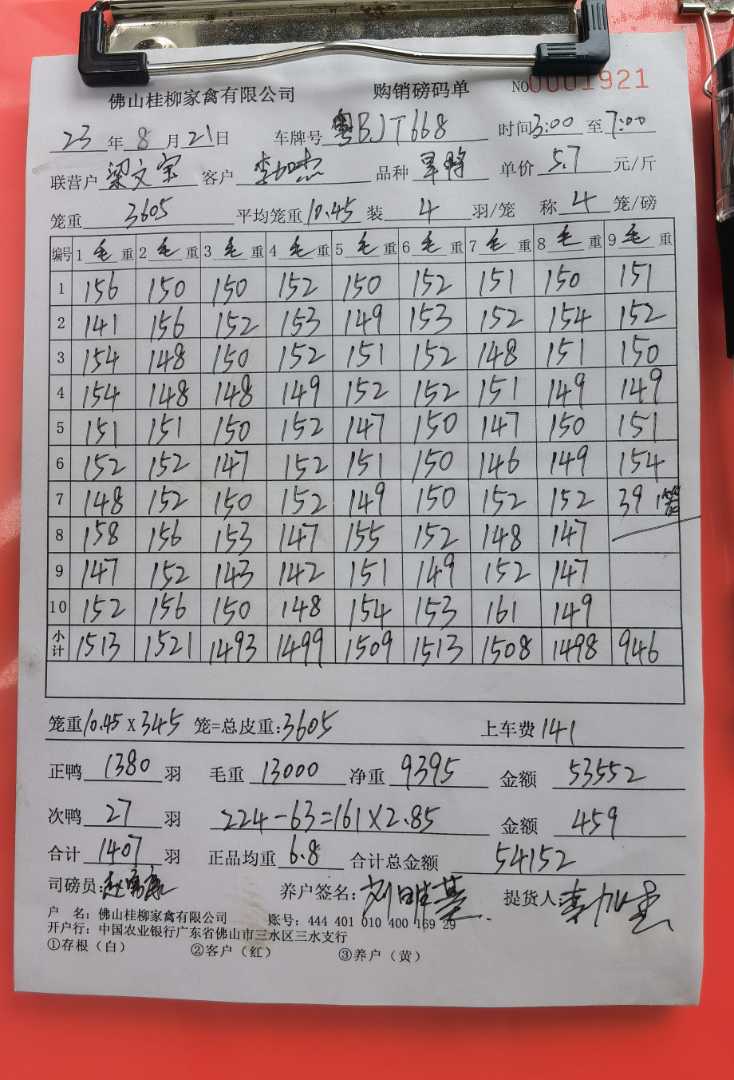 佛山桂柳家禽有限公司 购销磅码单 NO0001921
23 年 8 月 21 日 车牌号 粤BJT668 时间 3:00 至 7:00
联营户 梁文宗 客户 李加杰 品种 单价 5.7 元/斤
笼重 3605 平均笼重 10.45 装 4 羽/笼 称 4 笼/磅
编号 1 毛 重 2 毛 重 3 毛 重 4 毛 重 5 毛 重 6 毛 重 7 毛 重 8 毛 重 9 毛 重
1 156 150 150 152 150 152 151 150 151
2 141 156 152 153 149 153 152 154 152
3 154 148 150 152 151 152 148 151 150
4 154 148 148 149 152 152 151 149 149
5 151 151 150 152 147 150 147 150 151
6 152 152 147 152 151 150 146 149 154
7 148 152 150 152 149 150 152 152 39 1笼
8 158 156 153 147 155 152 148 147
9 147 152 143 142 151 149 152 147
10 152 156 150 148 154 153 161 149
小计 1513 1521 1493 1499 1509 1513 1508 1498 946
笼重 10.45 X 345 笼=总皮重:3605 上车费 141
正鸭 1380 羽 毛重 13000 净重 9395 金额 53552
次鸭 27 羽 224-63=161×2.85 金额 459
合计 1407 羽 正品均重 6.8 合计总金额 54152
司磅员: 养户签名: 提货人 李加杰
户 名: 佛山桂柳家禽有限公司 账号: 444 401 010 400 169 29
开户行: 中国农业银行广东省佛山市三水区三水支行
①存根(白) ②客户(红) ③养户(黄)